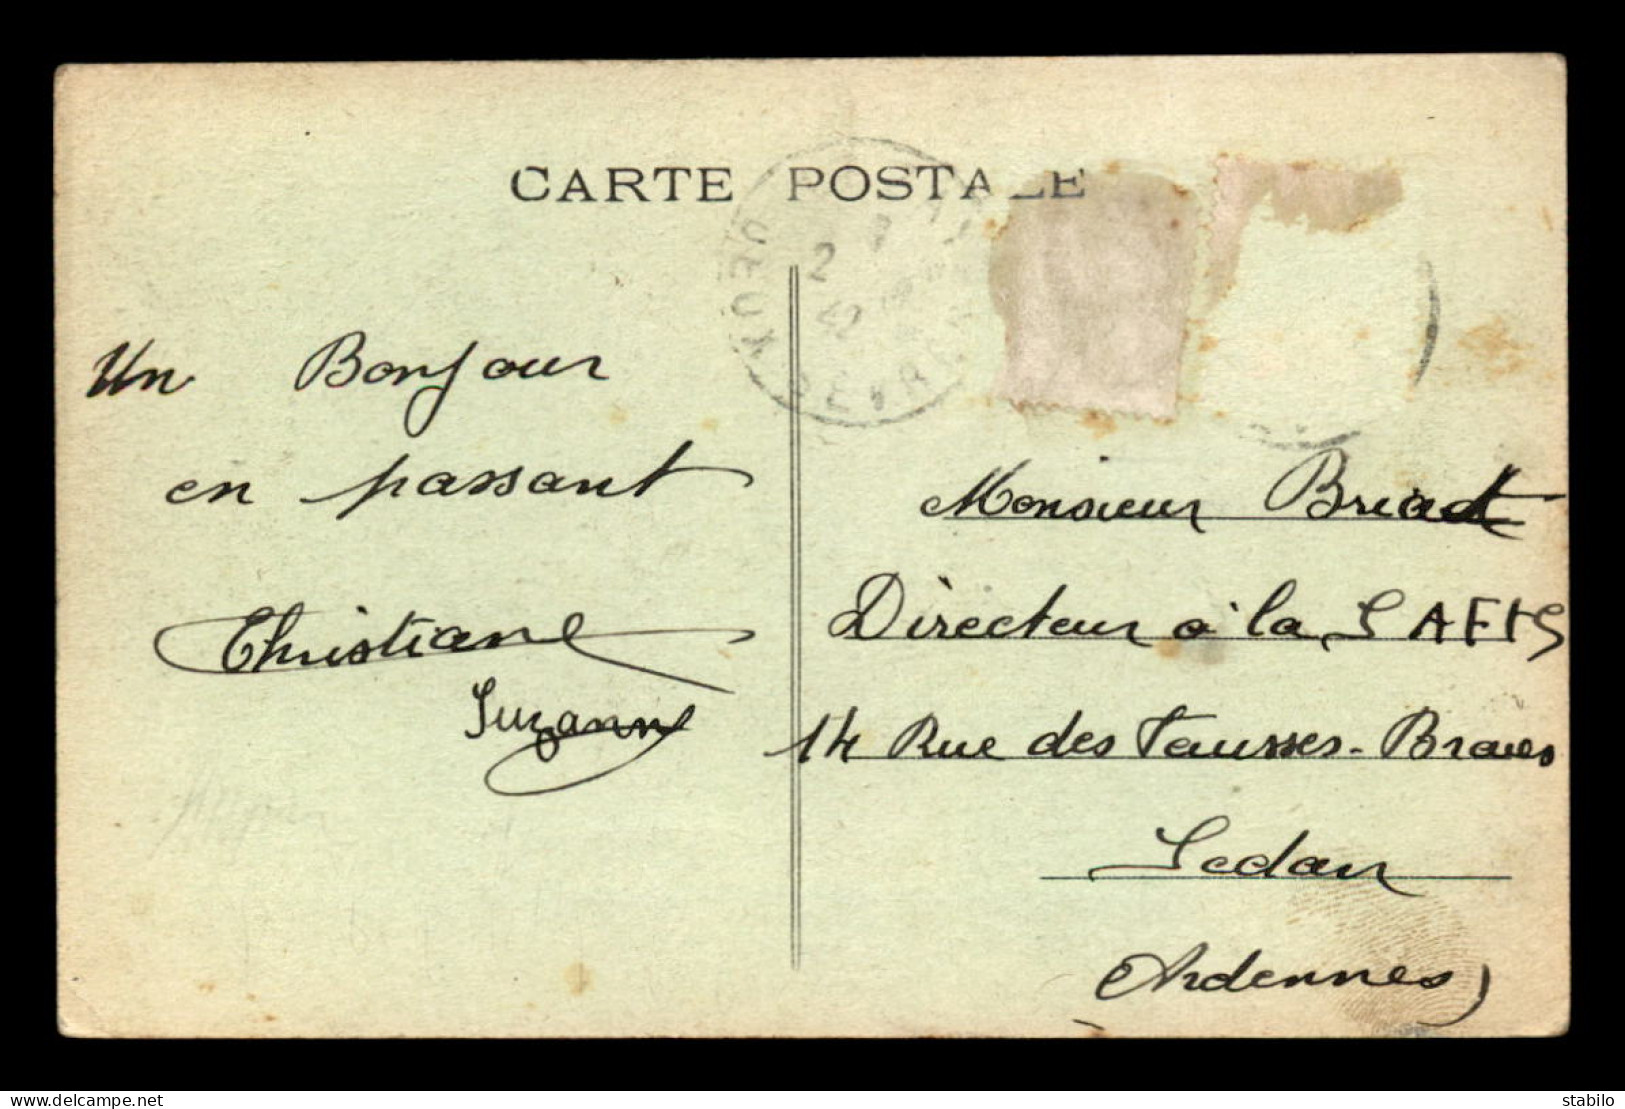 CARTE POSTALE
Un Bonjour
en passant
Christiane
Suzanne
Monsieur
Directeur à la SAFIS
14 Rue des Fausses-Braies
Sedan
(Ardennes)
delcampe.net
stabilo